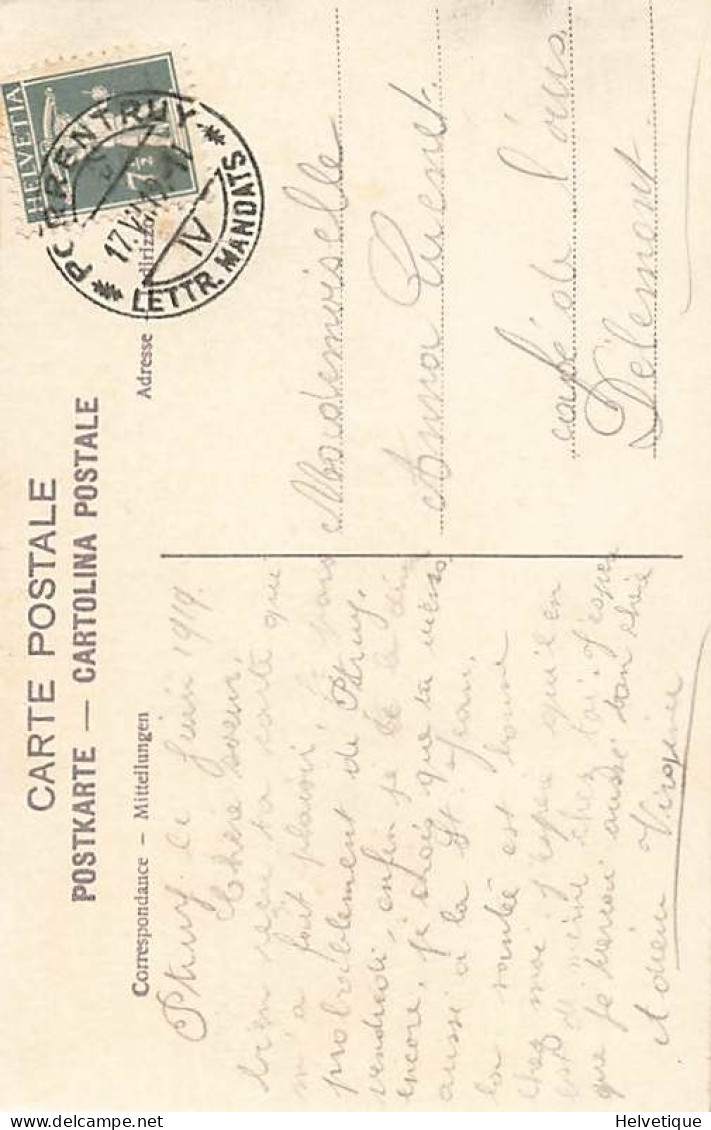 CARTE POSTALE
POSTKARTE — CARTOLINA POSTALE
Correspondance – Mitteilungen
Adresse
HELVETIA
7½
PORRENTRUY
17.VI.19
IV
LETTR. MANDATS
Ptruy, ce Juin 1919.
Chère soeur,
bien reçu ta carte que
m'a fait plaisir,
probablement de Ptruy,
vendredi, enfin je te le
encore, je que tu viens
aussi à la St Jean,
la santée est bonne
chez moi j'espère qu'il en
est de même chez toi. J'espère
que je aussi bon
Adieu Virginie
Mademoiselle
Anna
café de l'ours.
Délémont.
Helvetique